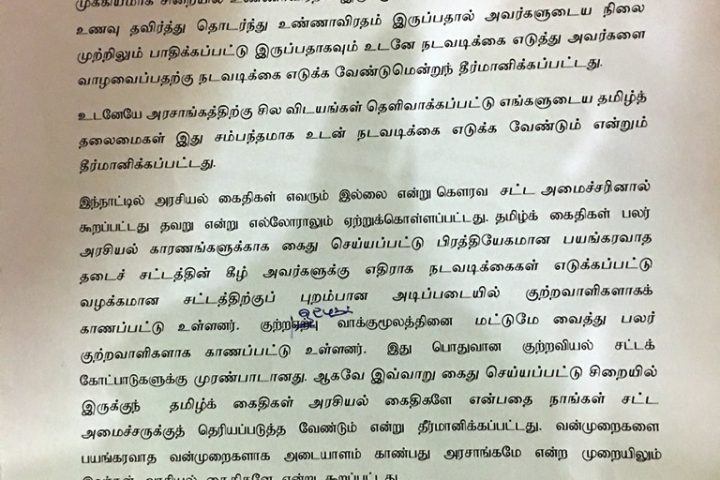 முக்கியமாக சிறையில்
உணவு தவிர்த்து தொடர்ந்து உண்ணாவிரதம் இருப்பதால் அவர்களுடைய நிலை
முற்றிலும் பாதிக்கப்பட்டு இருப்பதாகவும் உடனே நடவடிக்கை எடுத்து அவர்களை
வாழவைப்பதற்கு நடவடிக்கை எடுக்க வேண்டுமென்றுந் தீர்மானிக்கப்பட்டது.
உடனேயே அரசாங்கத்திற்கு சில விடயங்கள் தெளிவாக்கப்பட்டு எங்களுடைய தமிழ்த்
தலைமைகள் இது சம்பந்தமாக உடன் நடவடிக்கை எடுக்க வேண்டும் என்றும்
தீர்மானிக்கப்பட்டது.
இந்நாட்டில் அரசியல் கைதிகள் எவரும் இல்லை என்று கௌரவ சட்ட அமைச்சரினால்
கூறப்பட்டது தவறு என்று எல்லோராலும் ஏற்றுக்கொள்ளப்பட்டது. தமிழ்க் கைதிகள் பலர்
அரசியல் காரணங்களுக்காக கைது செய்யப்பட்டு பிரத்தியேகமான பயங்கரவாத
தடைச் சட்டத்தின் கீழ் அவர்களுக்கு எதிராக நடவடிக்கைகள் எடுக்கப்பட்டு
வழக்கமான சட்டத்திற்குப் புறம்பான அடிப்படையில் குற்றவாளிகளாகக்
காணப்பட்டு உள்ளனர். வாக்குமூலத்தினை மட்டுமே வைத்து பலர்
குற்றவாளிகளாக காணப்பட்டு உள்ளனர். இது பொதுவான குற்றவியல் சட்டக்
கோட்பாடுகளுக்கு முரண்பாடானது. ஆகவே இவ்வாறு கைது செய்யப்பட்டு சிறையில்
இருக்குந் தமிழ்க் கைதிகள் அரசியல் கைதிகளே என்பதை நாங்கள் சட்ட
அமைச்சருக்குத் தெரியப்படுத்த வேண்டும் என்று தீர்மானிக்கப்பட்டது. வன்முறைகளை
பயங்கரவாத வன்முறைகளாக அடையாளம் காண்பது அரசாங்கமே என்ற முறையிலும்
என்று கூறப்பட்டது.